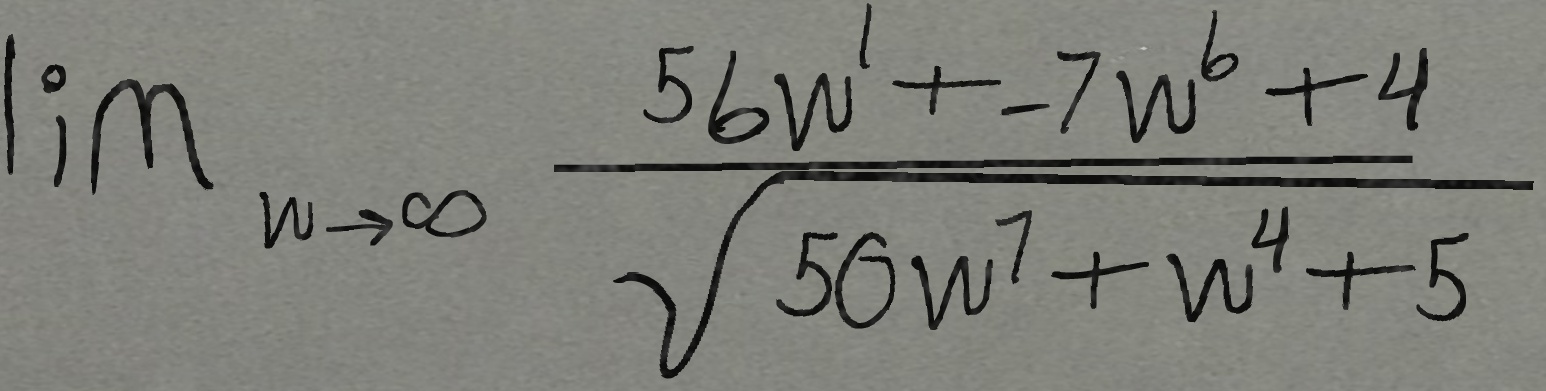 \lim_{w \to \infty} \frac{56w^1 + -7w^6 + 4}{\sqrt{50w^7 + w^4 + 5}}